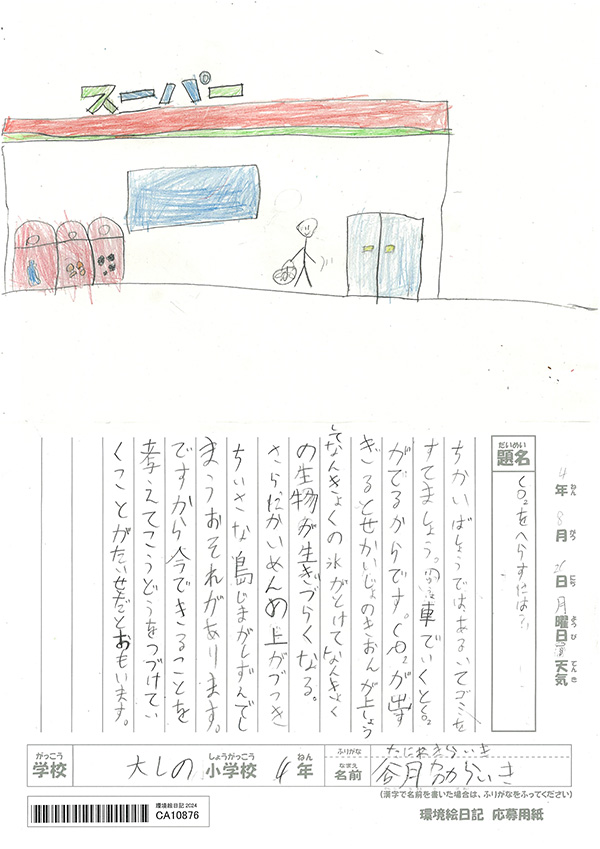 スーパー
4年 8月 日 月曜日 天気
ねん がつ にち ようび てんき
だいめい
題名
CO₂をへらすには?
ちかいばしょうでは、あるいてゴミを
すてましょう。車でいくとCO₂
がでるからです。CO₂が出す
ぎるとせかいじょのきおんが上しょう
してなんきょくの氷がとけてなんきょく
の生物が生きづらくなる。
さらにかいめんめ上がつづき
ちいさな島じまがしずんでし
まうおそれがあります。
ですから今できることを
考えてこうどうをつづけてい
くことがたいせだとおもいます。
がっこう
学校
大しの
しょうがっこう
小学校
4
ねん
年
ふりがな
なまえ
名前
らいき
(漢字で名前を書いた場合は、ふりがなをふってください)
環境絵日記2024
CA10876
環境絵日記 応募用紙